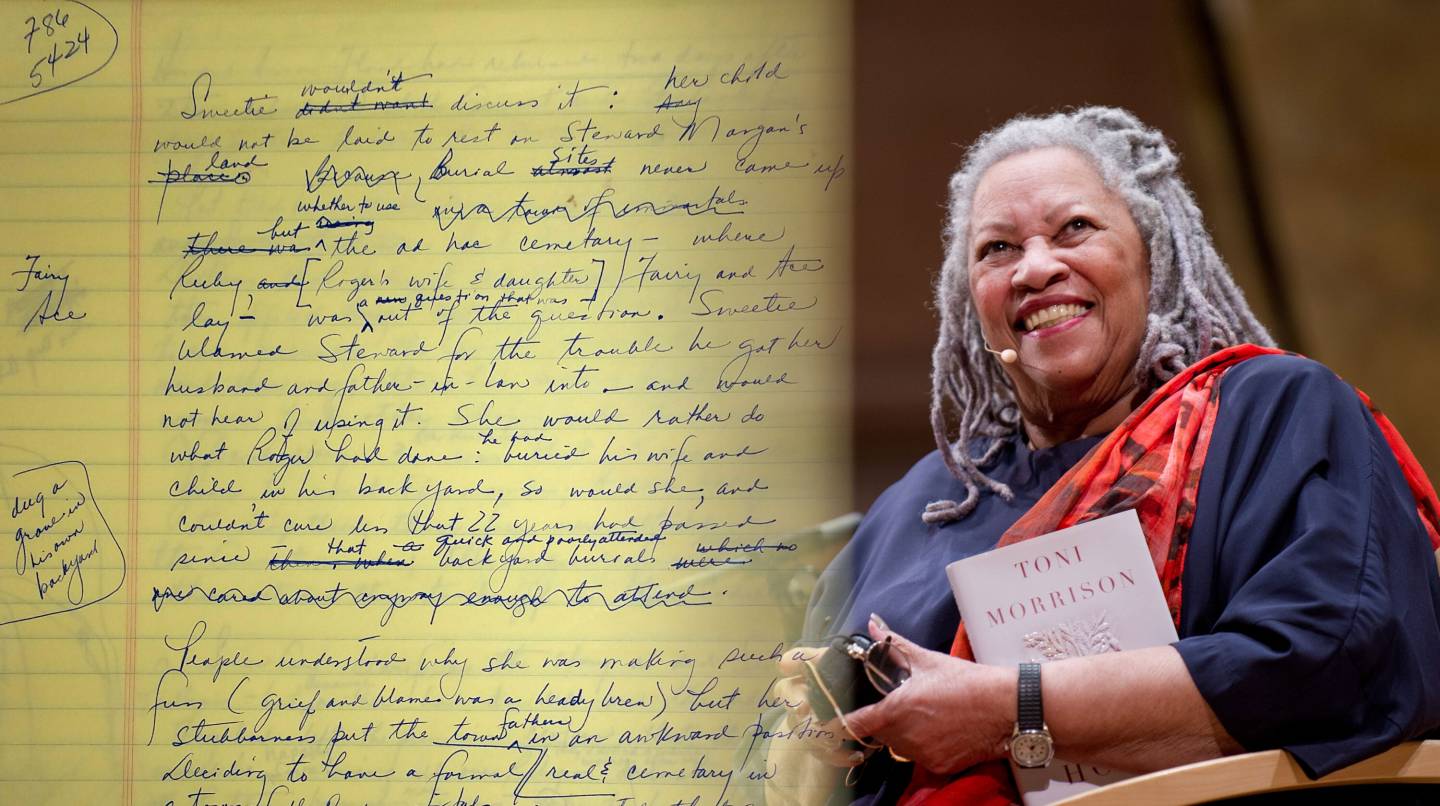 786
5424
wouldn't her child
Sweetie didn't want discuss it : Any
would not be laid to rest on Steward Morgan's
land Sites
place. Because, Burial almost never came up
whether to use in a town of immortals
but
there was the ad hoc cemetary - where
Fairy
Ruby and [Roger's wife & daughter] Fairy and Ace
Ace
a new question that was
lay - was out of the question. Sweetie
blamed Steward for the trouble he got her
husband and father-in-law into - and would
not hear of using it. She would rather do
he had
what Roger had done : buried his wife and
child in his back yard, so would she, and
dug a
grave in
his own
backyard
couldn't care less that 22 years had passed
that a quick and poorly attended
since them, when backyard burials which no
were
one cared about anyway enough to attend.
People understood why she was making such a
fuss (grief and blame was a heady brew) but her
fathers
stubborness put the town in an awkward position.
Deciding to have a formal real cemetary in
TONI
MORRISON
HO